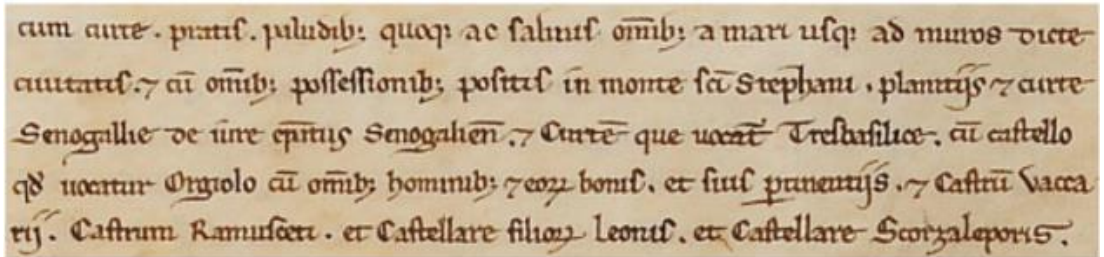 cum curte . pratis . paludib; quoq; ac salinis om̅ib; a mari usq; ad muros dicte
ciuitatis . ⁊ cū om̅ib; possessionib; positis in monte sc̅i Stephani . planitijs ⁊ curte
Senogallie de iure ep̅atus Senogalien̅ . ⁊ Curtē que uocat̅ Tresbasilice . cū castello
qd̅ uocatur Orgiolo cū om̅ib; hominib; ⁊ eoꝝ bonis . et suis ꝑtinentijs . ⁊ Castrū Vacca
rij . Castrum Ramusceti . et Castellare filioꝝ Leonis . et Castellare Scorzaleporis .